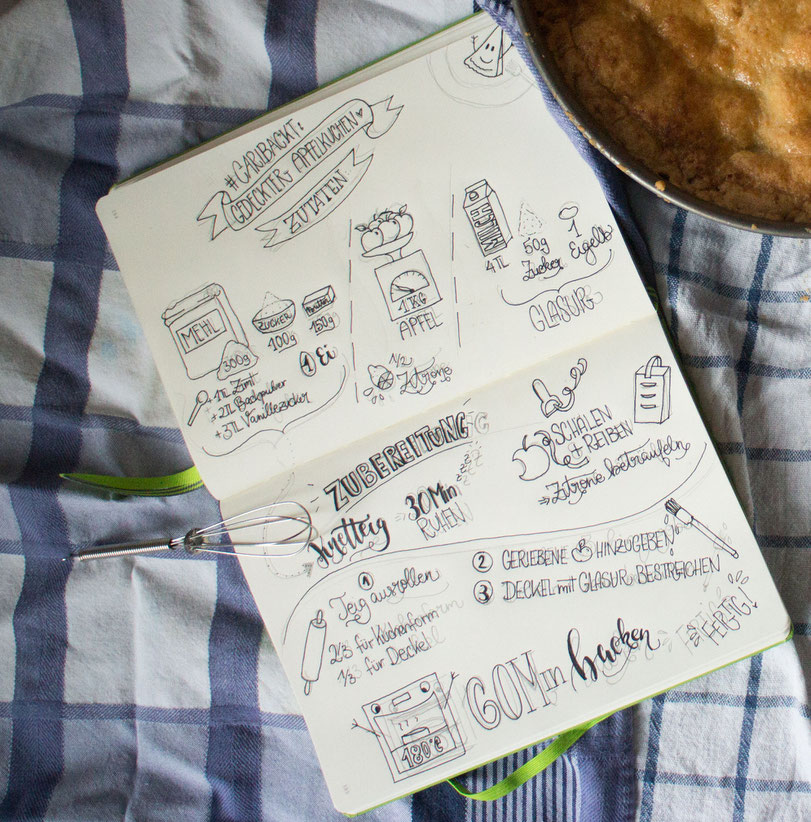 #CARIBACKT:
GEDECKTER APFELKUCHEN
ZUTATEN
MEHL
300g
ZUCKER
100g
150g
1 Ei
1TL Zimt
+2TL Backpulver
+3TL Vanillezucker
1KG
ÄPFEL
1/2
Zitrone
4TL
50g
Zucker
1
Eigelb
GLASUR
ZUBEREITUNG
Knetteig
30Min
RUHEN
SCHÄLEN
+ REIBEN
⇒ Zitrone beträufeln
1
Teig ausrollen
2/3 für Kuchenform
1/3 für Deckel
2 GERIEBENE HINZUGEBEN
3 DECKEL mit GLASUR BESTREICHEN
180°C
60Min backen
FERTIG!